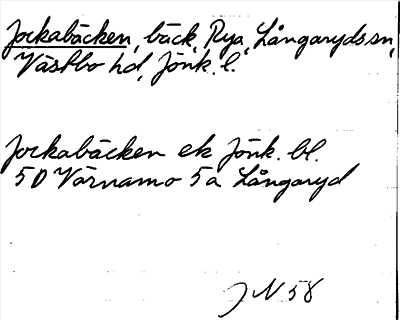 Jockabäcken, bäck, Rya, Långaryds sn,
Västbo hd, Jönk. l.
Jockabäcken ek Jönk. bl.
5D Värnamo 5a Långaryd
JN 58